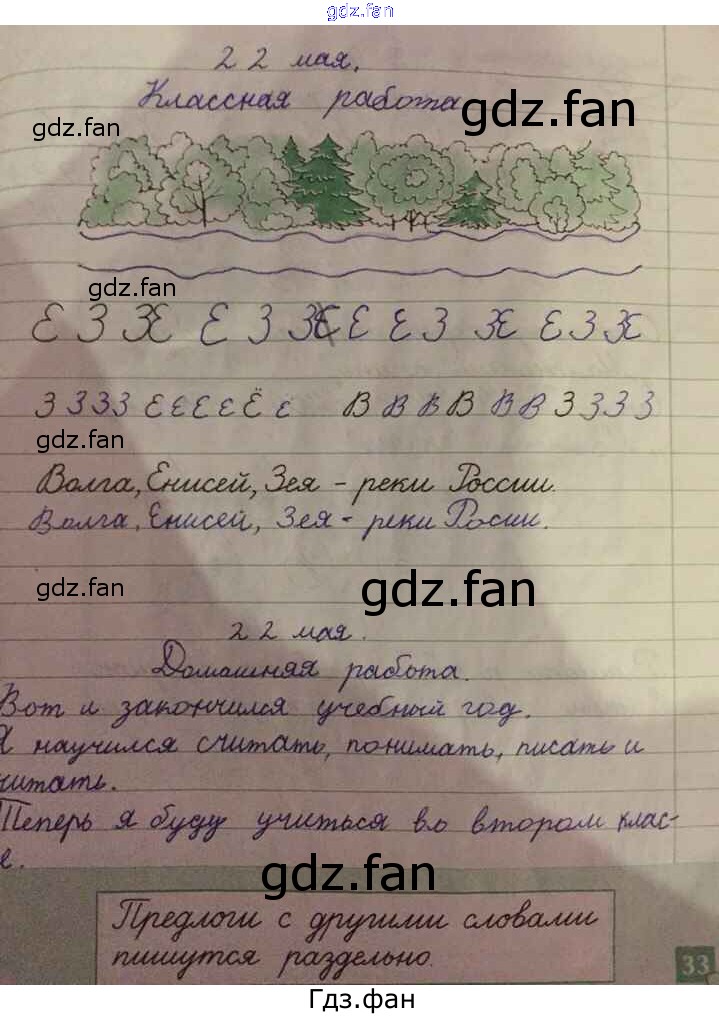 gdz.fan
22 мая.
Классная работа
gdz.fan
gdz.fan
gdz.fan
Е З Ж Е З Ж Е Е З Ж Е З Ж
З З З З Е Е Е Е Ё Е В В В В В В З З З З
gdz.fan
Волга, Енисей, Зея - реки России.
Волга, Енисей, Зея - реки Росии.
gdz.fan
gdz.fan
22 мая.
Домашняя работа.
Вот и закончился учебный год.
Я научился считать, понимать, писать и
читать.
Теперь я буду учиться во втором клас-
е.
gdz.fan
Предлоги с другими словами
пишутся раздельно.
33
Гдз.фан